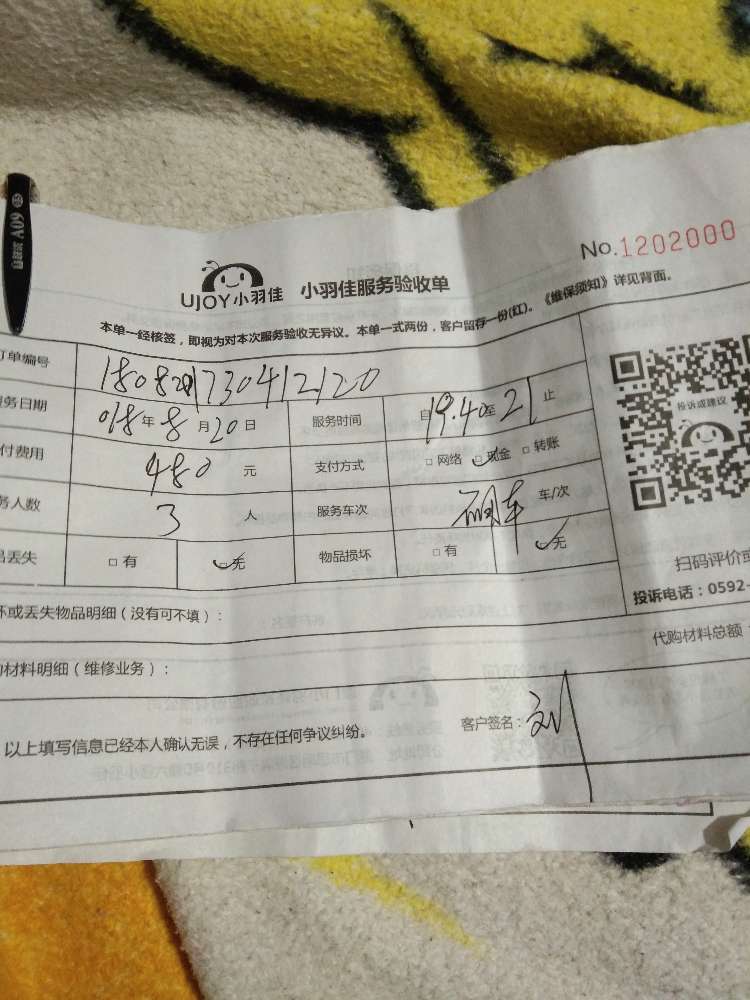 No.1202000
UJOY小羽佳 小羽佳服务验收单
本单一经核签，即视为对本次服务验收无异议。本单一式两份，客户留存一份(红)。《维保须知》详见背面。
订单编号
服务日期 018年8月20日 服务时间 自19.40至21止
付费用 480元 支付方式 □网络 □现金 □转账
务人数 3人 服务车次 车/次
丢失 □有 □无 物品损坏 □有 □无
投诉或建议
扫码评价或
投诉电话：0592-
坏或丢失物品明细（没有可不填）：
代购材料总额：
购材料明细（维修业务）：
以上填写信息已经本人确认无误，不存在任何争议纠纷。 客户签名：刘
A09